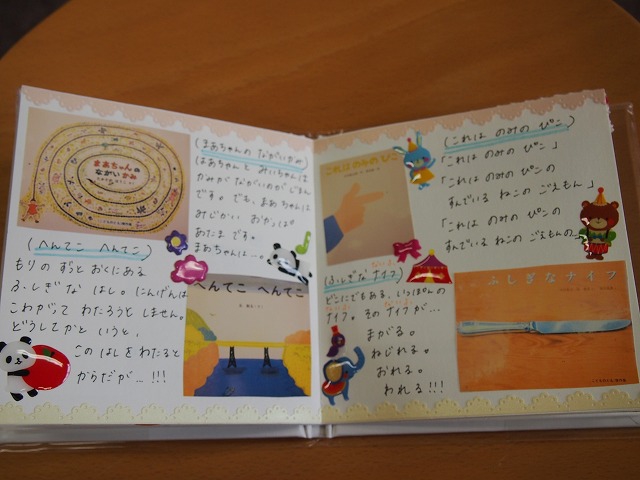 まあちゃんの
ながいかみ
(まあちゃんの ながいかみ)
はあちゃんと みいちゃんは
かみが ながいのが じまん
です。でも、まあちゃんは
みじかい おかっぱ
あたま です。
まあちゃんは…。
(へんてこ へんてこ)
もりの ずっと おくにある
ふしぎな はし。にんげんは
こわがって わたろうと しません。
どうしてかと いうと、
この はしを わたると
からだが…!!!
へんてこ へんてこ
これは のみの ぴこ
(これは のみの ぴこ)
「これは のみの ぴこ」
「これは のみの ぴこの
すんでいる ねこの ごえもん」
「これは のみの ぴこの
すんでいる ねこの ごえもんの…
(ふしぎな ナイフ)
どこにでもある、いっぽんの
ナイフ。その ナイフが…
まがる。
ねじれる。
おれる。
われる!!!
ふしぎなナイフ